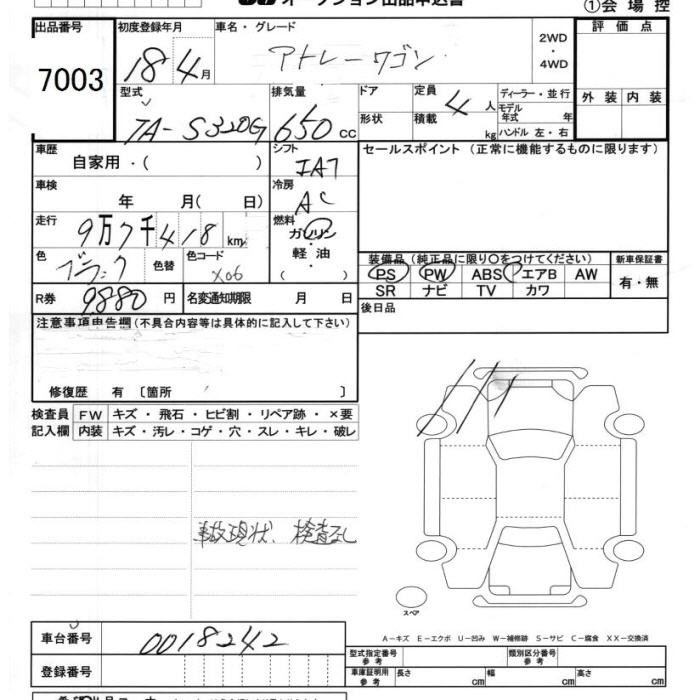 オークション出品申込書
①会場控
出品番号 初度登録年月 車名・グレード 評価点
7003 18年4月 アトレーワゴン 2WD ・ 4WD
外装 内装
型式 排気量 ドア 定員 ディーラー・並行
TA-S320G 650cc 形状 4人 積載 kg モデル年式 年 ハンドル 左・右
車歴 シフト セールスポイント(正常に機能するものに限ります)
自家用・( ) IA7
車検 冷房
年 月(日) AC
走行 燃料
9万7千418km ガソリン
色 色替 色コード 軽油
ブラック X06 ( )
装備品(純正品に限り○をつけてください) 新車保証書
PS PW ABS エアB AW 有・無
SR ナビ TV カワ
R券 9,880円 名変通知期限 月 日
後日品
注意事項申告欄(不具合内容等は具体的に記入して下さい)
修復歴 有〔箇所 〕
検査員 FW キズ・飛石・ヒビ割・リペア跡・×要
記入欄 内装 キズ・汚レ・コゲ・穴・スレ・キレ・破レ
事故現状、検査なし
スペア
A-キズ E-エクボ U-凹み W-補修跡 S-サビ C-腐食 XX-交換済
車台番号 0018242
型式指定番号 参考 類別区分番号 参考
登録番号
車庫証明用 参考 長さ cm 幅 cm 高さ cm